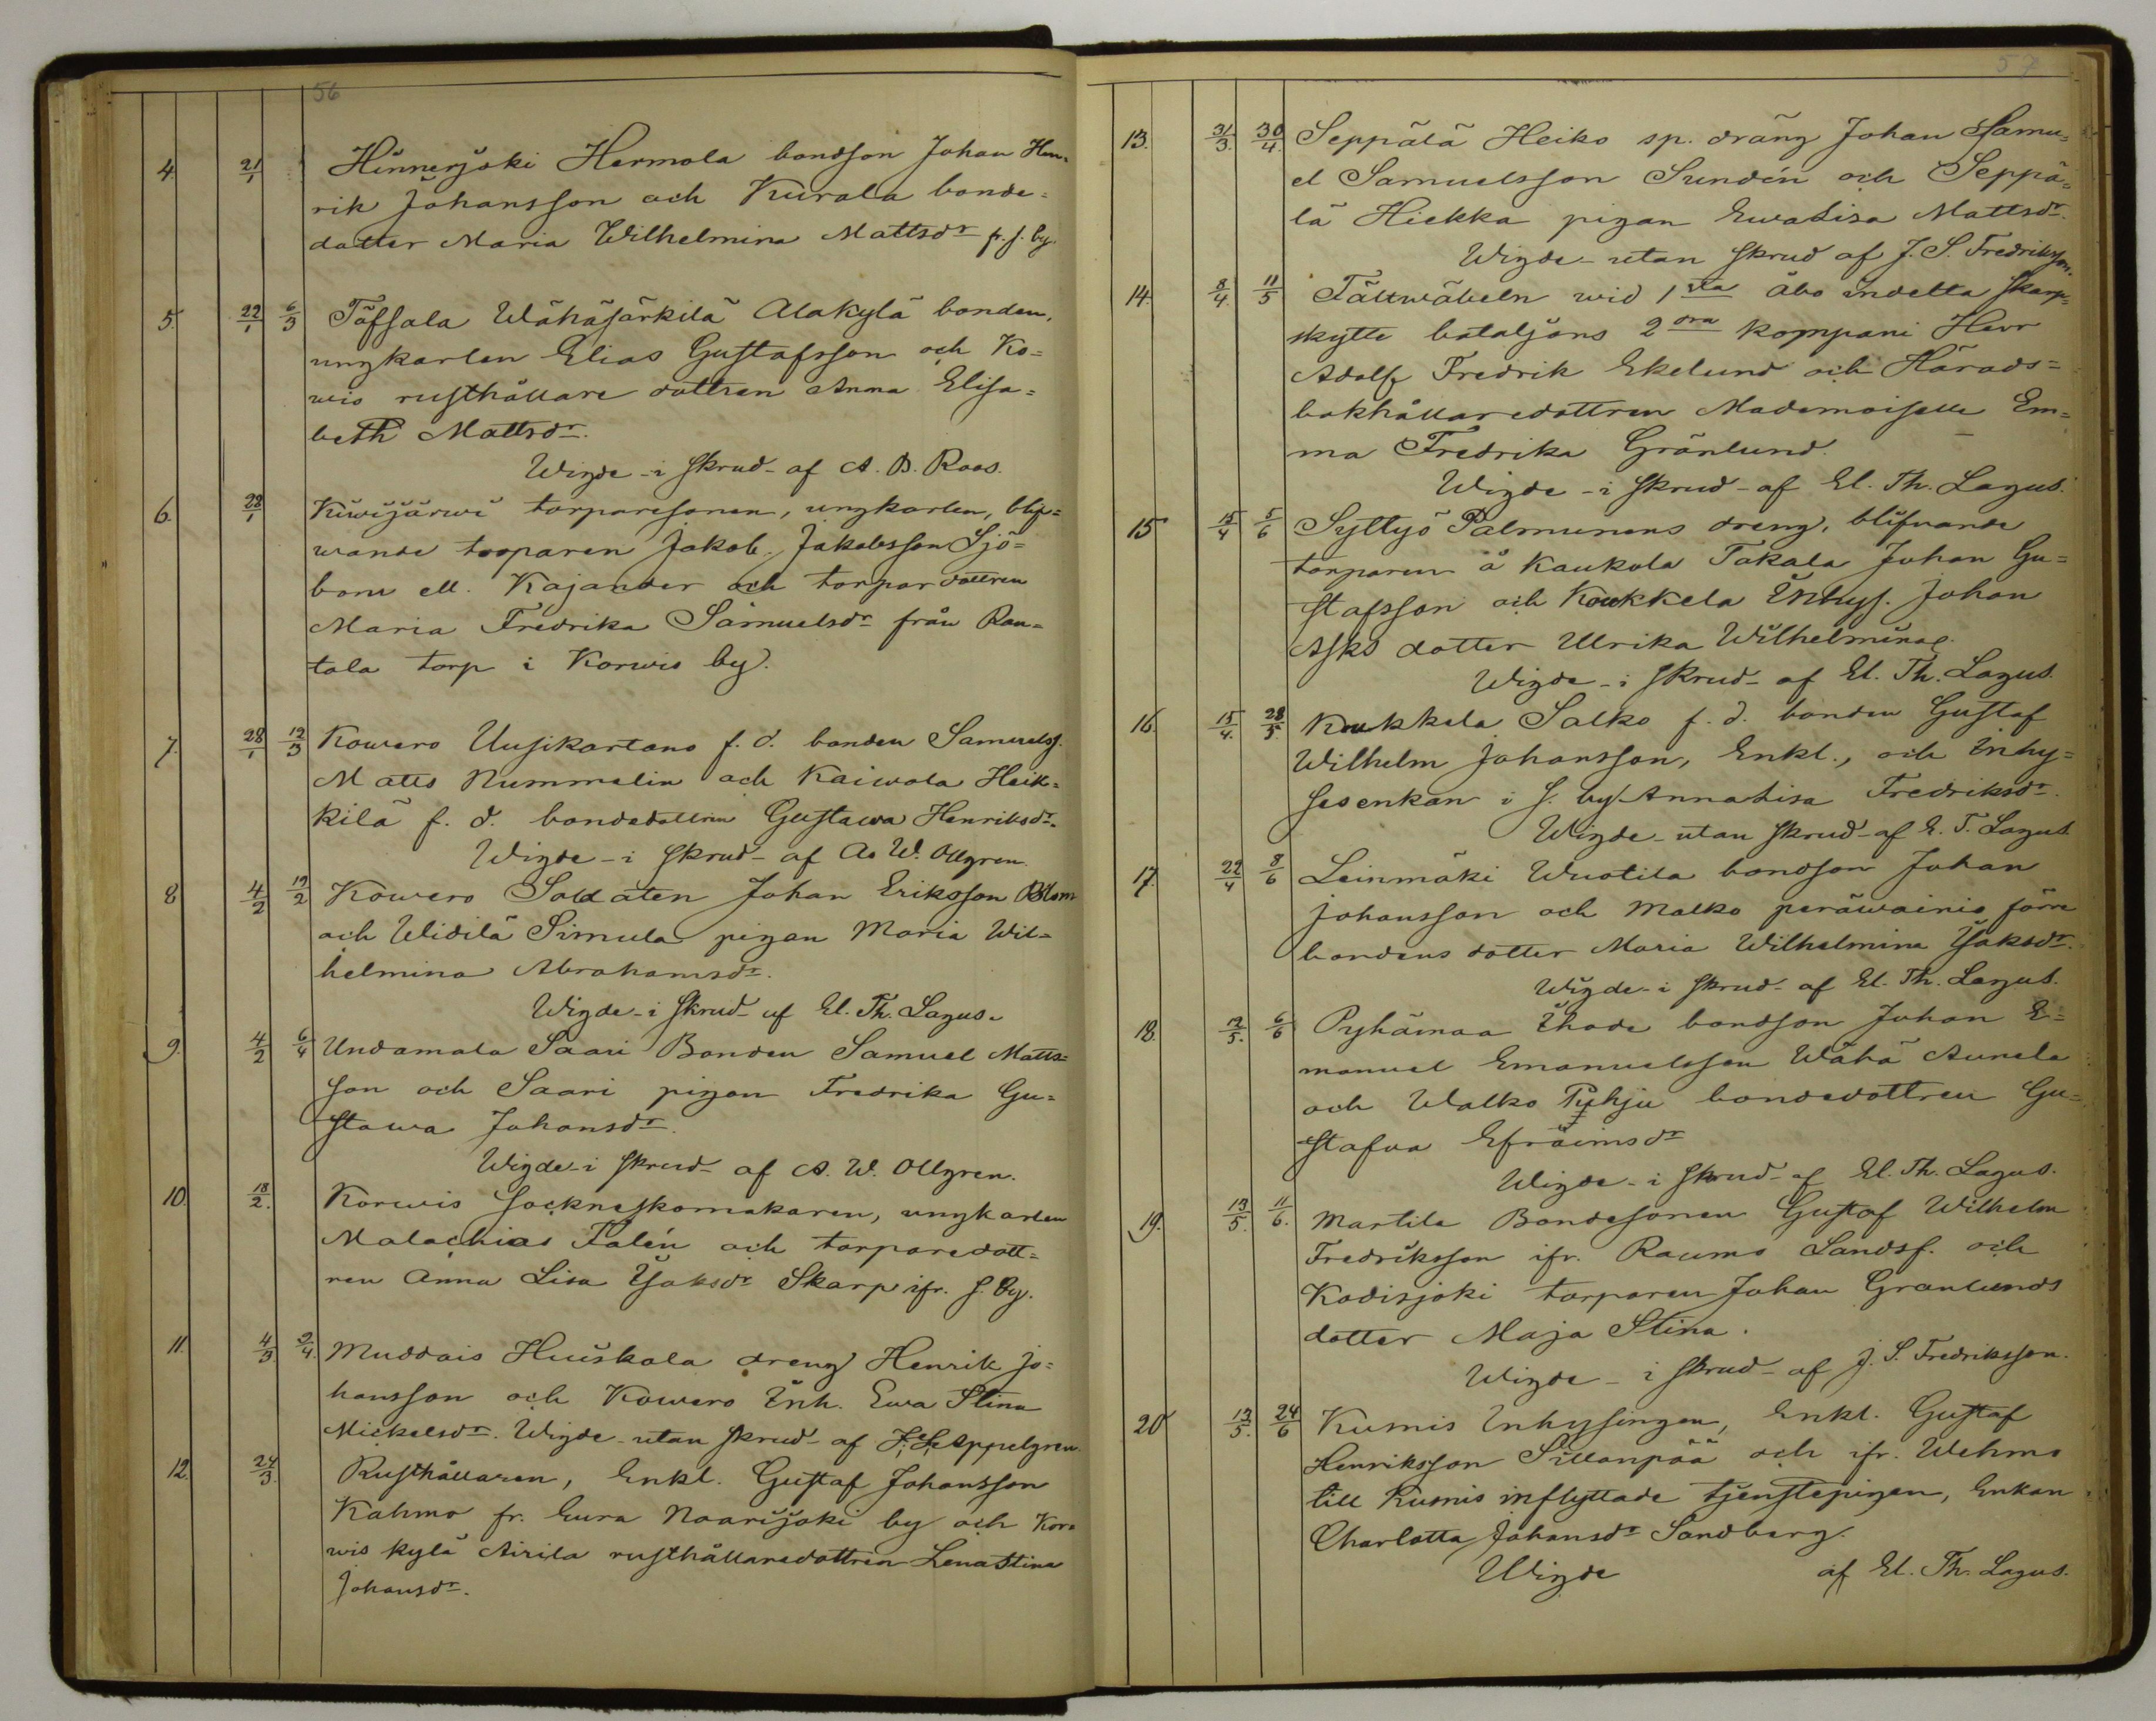 56
4. 21/1 Hinnerjoki Hermola bondson Johan Hen-
rik Johansson och Kurala bonde=
dotter Maria Wilhelmina Mattsdr fr. s. by.
5. 22/1 6/3 Töfsala Wähäjärkilä Alakylä bonden,
ungkarlen Elias Gustafsson och Ko=
wis rusthållare dottren Anna Elisa=
beth Mattsdr.
Wigde - i skrud - af A. B. Roos.
6. 28/1 Kiwijärwi torparesonen, ungkarlen, blif=
wande torparen Jakob Jakobsson Sjö=
bom ell. Kajander och torpardottren
Maria Fredrika Samuelsdr från Ran=
tala torp i Korwis by.
7. 28/1 12/3 Kowero Uusikartano f. d. bonden Samuelss.
Matts Nummelin och Kaiwola Heik=
kilä f. d. bondedottren Gustawa Henriksdr.
Wigde - i skrud - af A. W. Ollgren.
8 4/2 19/2 Kowero Soldaten Johan Eriksson Blom
och Widilä Simula pigan Maria Wil=
helmina Abrahamsdr.
Wigde - i skrud - af El. Th. Lagus.
9. 4/2 6/4 Undamala Saari Bonden Samuel Matts=
son och Saari pigan Fredrika Gu=
stawa Johansdr.
Wigde - i skrud - af A. W. Ollgren.
10. 18/2. Korwis sockneskomakaren, ungkarlen
Malachias Falén och torparedott=
ren Anna Lisa Isaksdr Skarp ifr. s. by.
11. 4/3. 2/4. Muddais Huiskala dreng Henrik Jo=
hansson och Kowero Inh. Ewa Stina
Mickelsdr. Wigde - utan skrud - af Appelgren.
12. 24/3. Rusthållaren, Enkl. Gustaf Johansson
Kahmo fr. Eura Naarijoki by och Kor=
wis kylä Airila rusthållaredottren Lena Stina
Johansdr.
57
13. 31/3. 30/4. Seppälä Heiko sp. dräng Johan Samu=
el Samuelsson Sundén och Seppä=
lä Hiekka pigan Ewa Lisa Mattsdr.
Wigde - utan skrud af J. S. Fredriksson.
14. 8/4. 11/5 Fältwäbeln wid 1 sta Åbo indelta skarp=
skytte bataljons 2 dra kompani Herr
Adolf Fredrik Ekelund och Härads=
bokhållaredottren Mademoiselle Em=
ma Fredrika Grönlund.
Wigde - i skrud - af El. Th. Lagus.
15 15/4 5/6 Syttyö Palmunens dreng, blifvande
torparen å Kaukola Takala Johan Gu=
stafsson och Koukkela Inhys. Johan
Asks dotter Ulrika Wilhelmina.
Wigde - i skrud - af El. Th. Lagus.
16. 15/4. 28/5. Koukkela Salko f. d. bonden Gustaf
Wilhelm Johansson, Enkl., och Inhy=
sesenkan i s. by Anna Lisa Fredriksdr.
Wigde - utan skrud - af E. T. Lagus.
17. 22/4 8/6 Leinmäki Wuotila bondson Johan
Johansson och Malko peräwainio förre
bondens dotter Maria Wilhelmina Isaksdr.
Wigde - i skrud - af El. Th. Lagus.
18. 12/5. 6/6 Pyhämaa Ihode bondson Johan E=
manuel Emanuelsson Wähä Aunela
och Walko Pyhju bondedottren Gu=
stafva Efraimsdr
Wigde - i skrud - af El. Th. Lagus.
19. 13/5. 11/6. Martila Bondesonen Gustaf Wilhelm
Fredriksson ifr. Raumo Landsf. och
Kodisjoki torparen Johan Granlunds
dotter Maja Stina.
Wigde - i skrud - af J. S. Fredriksson.
20 13/5. 24/6 Kumis Inhysingen, Enkl. Gustaf
Henriksson Sillanpää och ifr. Wehmo
till Kumis inflyttade tjenstepigan, Enkan
Charlotta Johansdr Sandberg.
Wigde af El. Th. Lagus.